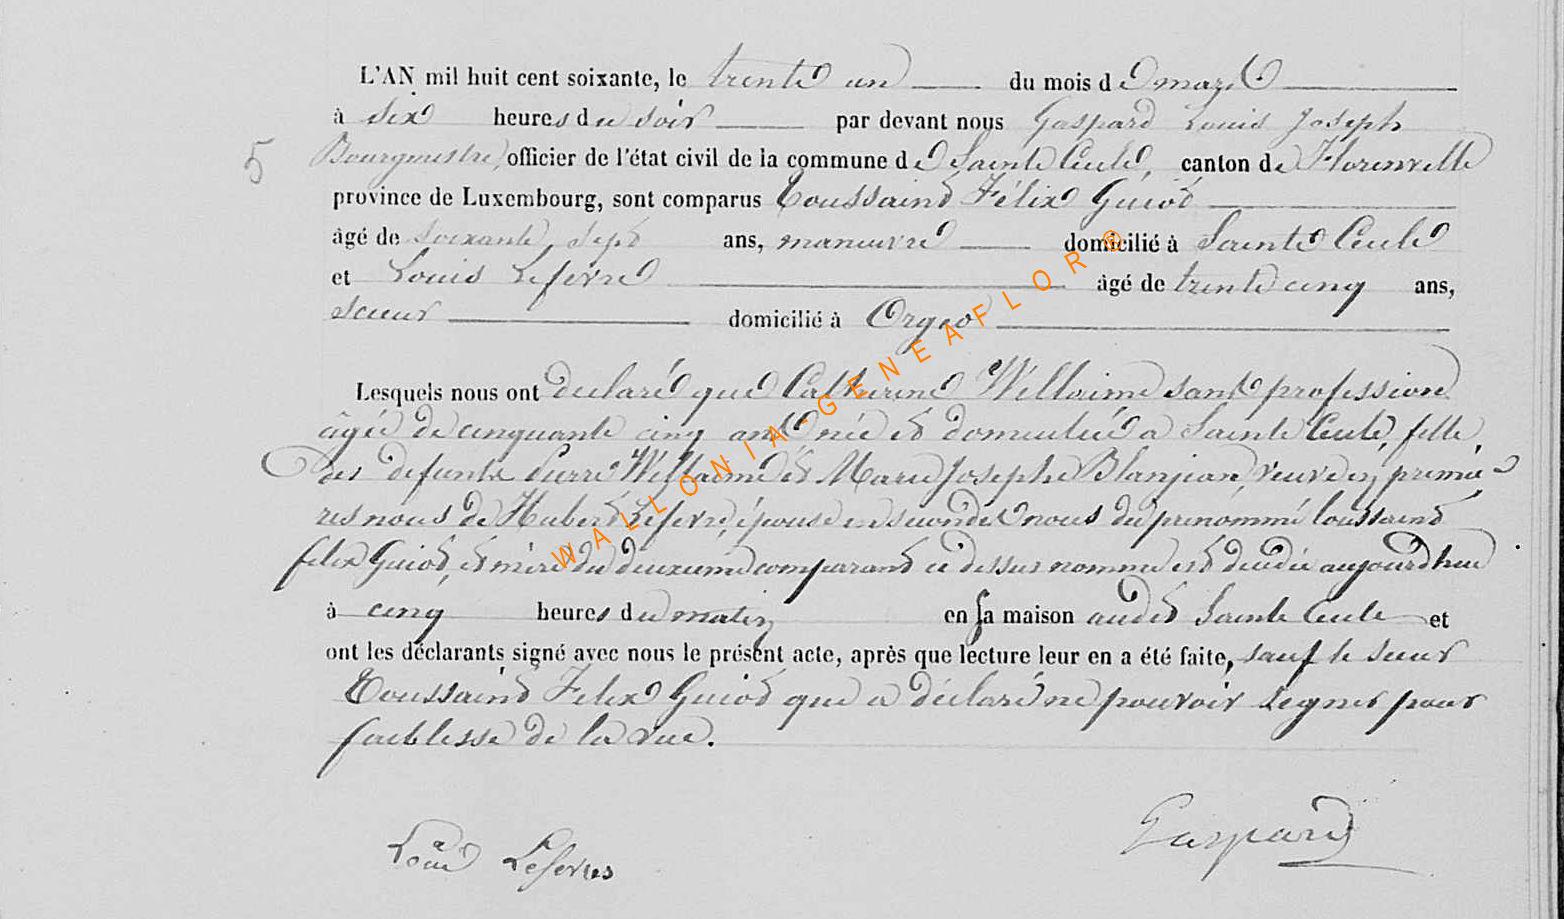 L'AN mil huit cent soixante, le trente un du mois de mars
à six heures du soir par devant nous Gaspard Louis Joseph
5 Bourgmestre, officier de l'état civil de la commune de Sainte Cecile, canton de Florenville
province de Luxembourg, sont comparus Toussaint Félix Guiot
âgé de soixante sept ans, manœuvre domicilié à Sainte Cecile
et Louis Lefevre âgé de trente cinq ans,
scieur domicilié à Orgeo
Lesquels nous ont declaré que Catherine Willaime sans profession
âgée de cinquante cinq ans née et domiciliée a Sainte Cecile, fille
des defunts Pierre Willaime et Marie Josephe Blanjean, veuve en premie
res noces de Hubert Lefevre, épouse en secondes noces du prenommé Toussaint
felix Guiot, et mère du deuxieme comparant ci dessus nommé est décédée aujourdhui
à cinq heures du matin en sa maison audit Sainte Cecile et
ont les déclarants signé avec nous le présent acte, après que lecture leur en a été faite, sauf le sieur
Toussaint Felix Guiot que a déclaré ne pouvoir signer pour
faiblesse de la vue.
Gaspard
Louis Lefevres
WALLONIA-GENEAFLOR®